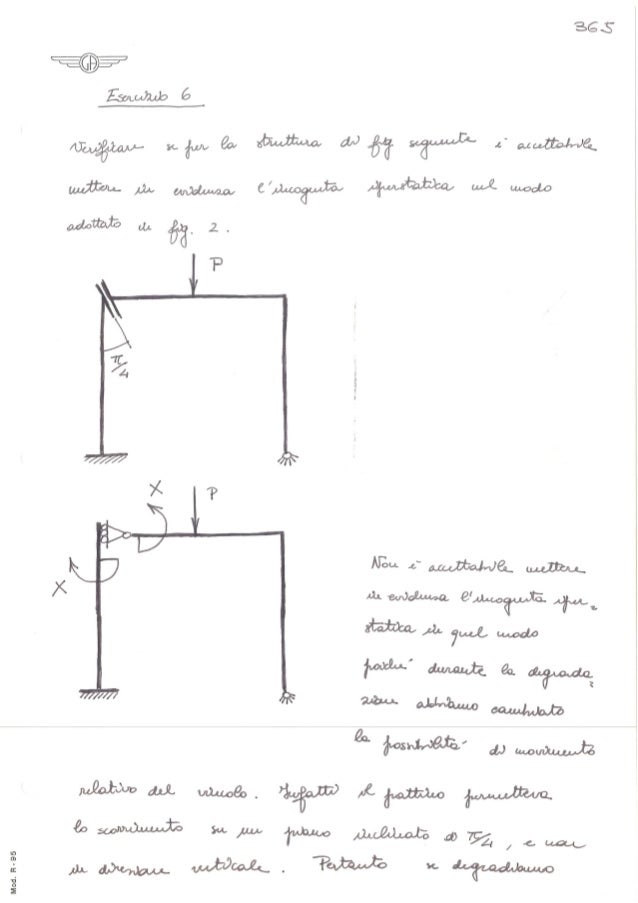 365
GA
Esercizio 6
Verificare se per la struttura di fig seguente è accettabile
mettere in evidenza l'incognita iperstatica nel modo
adottato in fig. 2.
P
π/4
X
P
X
Non è accettabile mettere
in evidenza l'incognita iper-
statica in quel modo
perché durante la degrada-
zione abbiamo cambiato
la possibilità di movimento
relativo del vincolo. Infatti il pattino permetteva
lo scorrimento su un piano inclinato a π/4, e non
in direzione verticale. Pertanto se degradiamo
Mod. R - 95